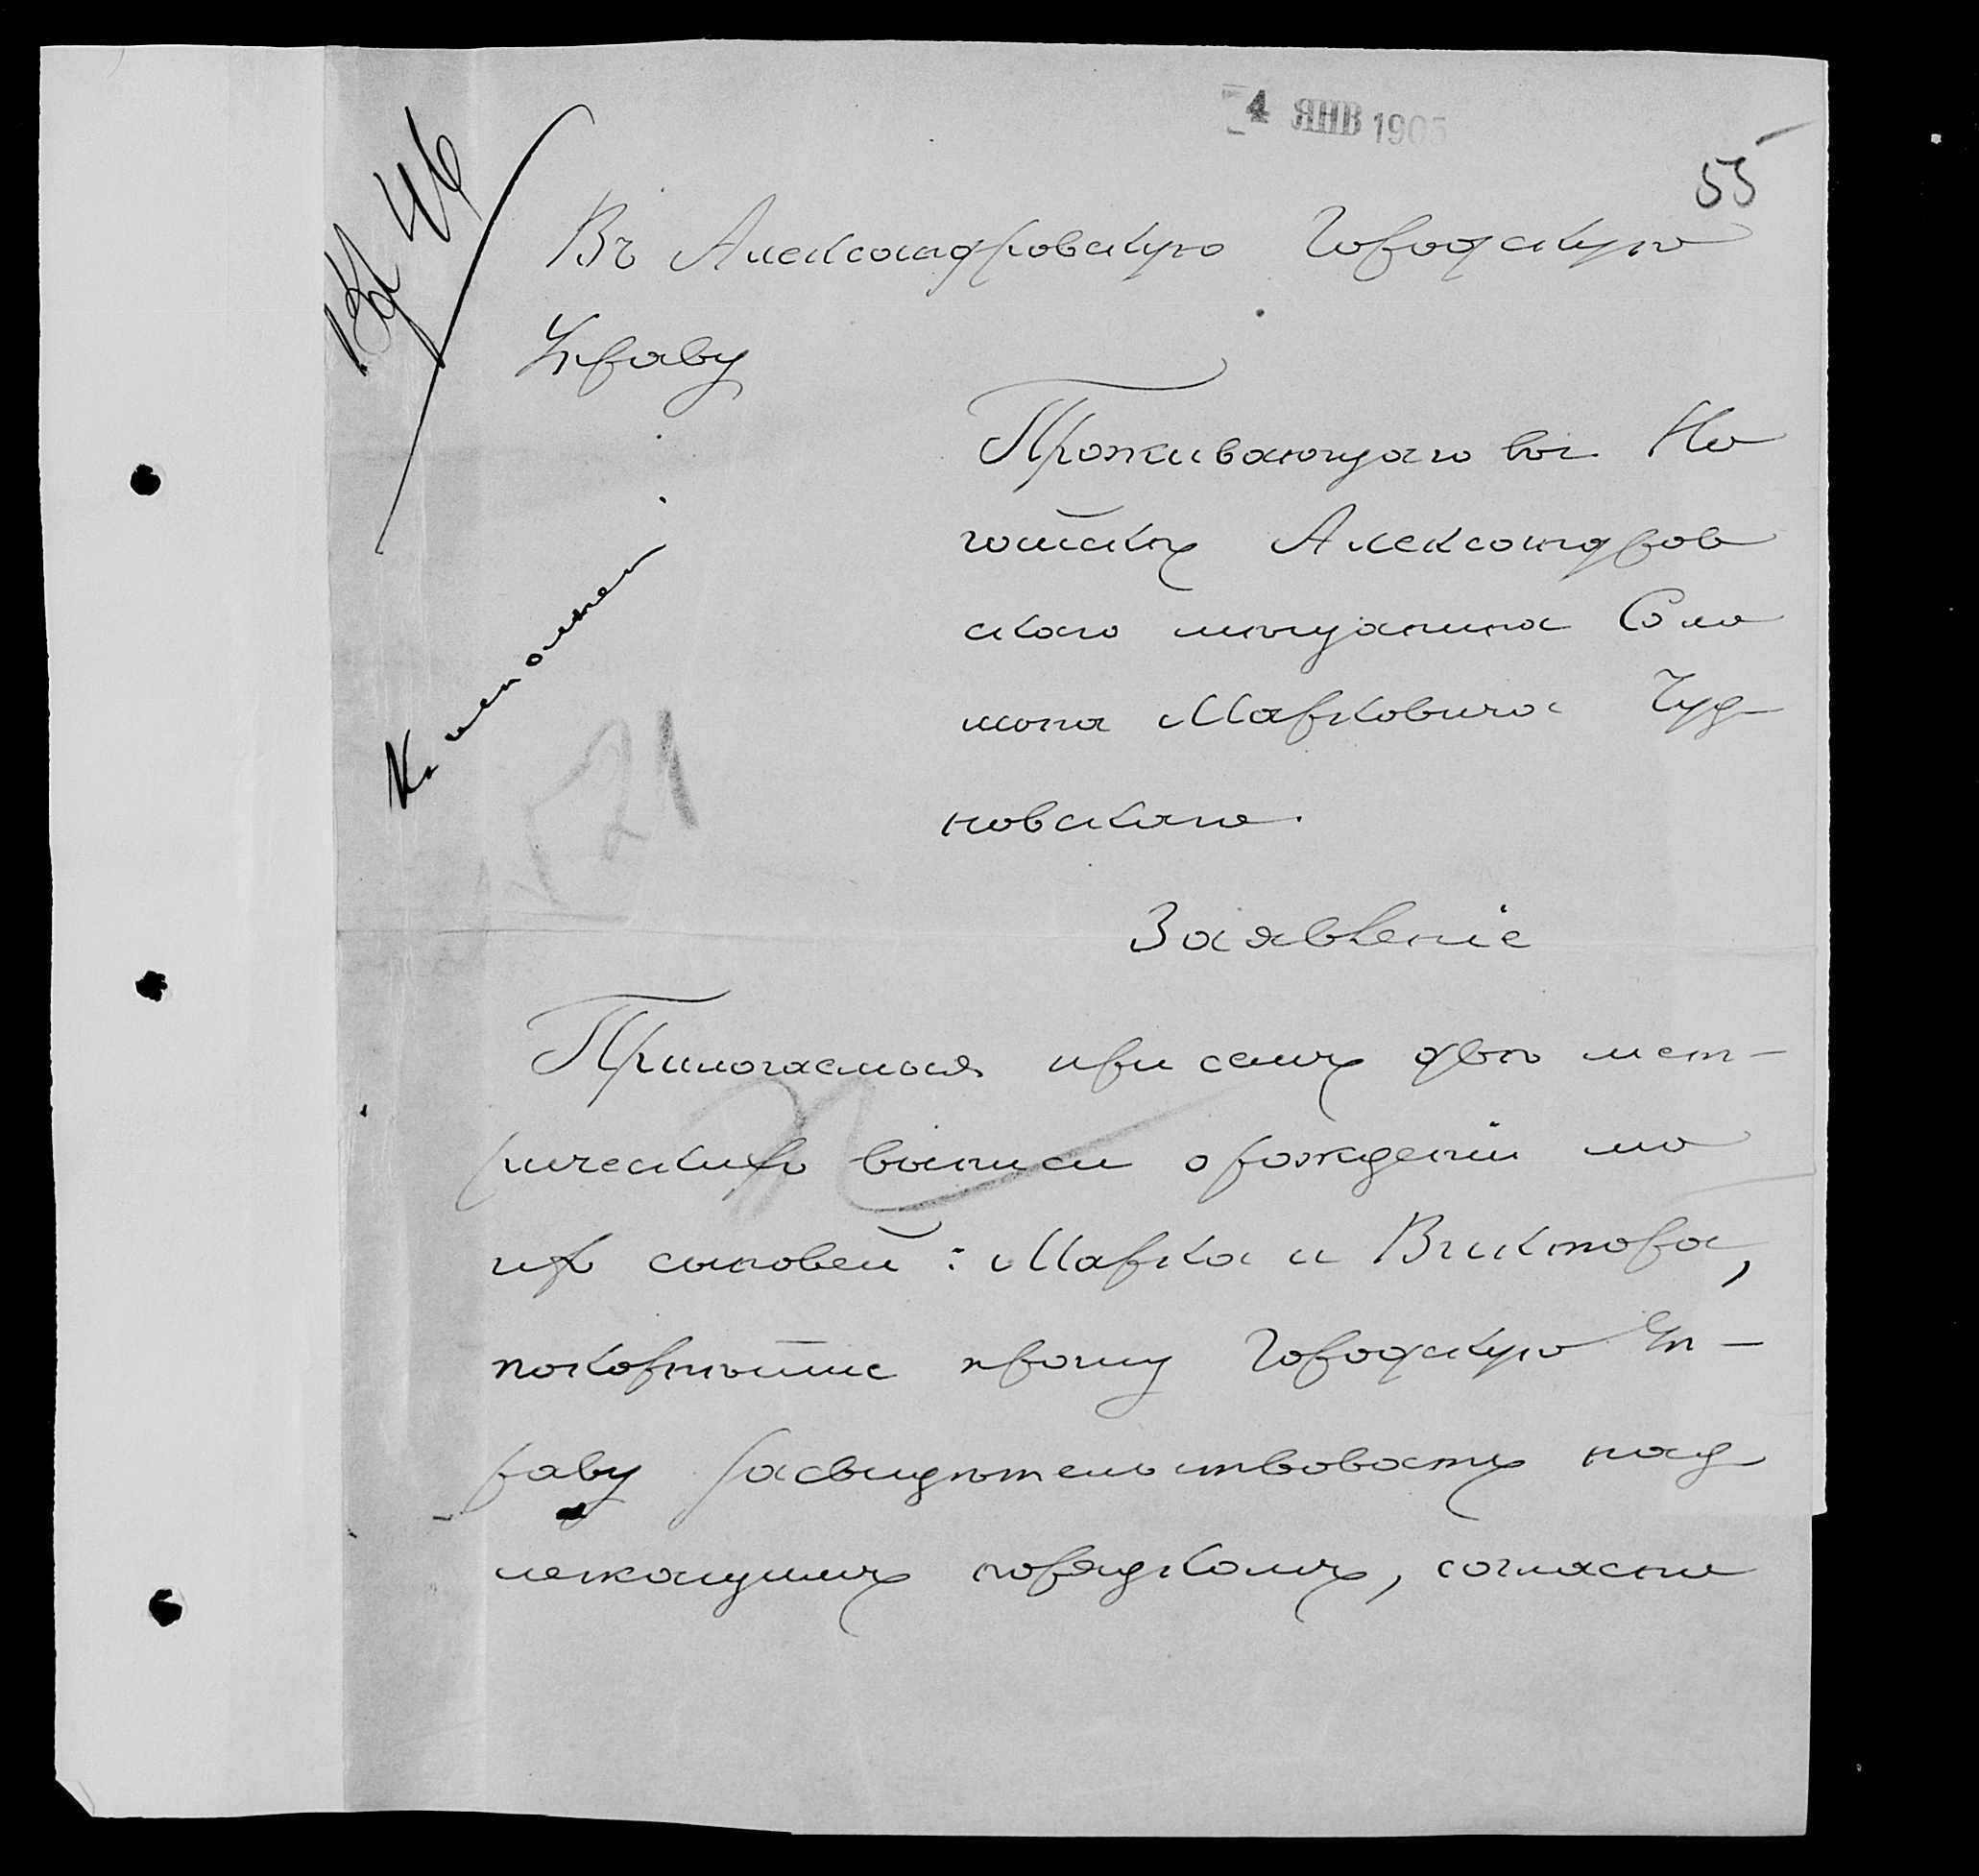 4 ЯНВ 1905
55
Въ Александровскую Городскую
Управу
Проживающаго въ г. Но
гайскѣ Александров
скаго мѣщанина Соло
мона Марковича Чуд-
новскаго.
Заявленіе
Прилагаемыя при семъ двѣ мет-
рическихъ выписи о рожденіи мо
ихъ сыновей: Марка и Виктора,
покорнѣйше прошу Городскую Уп-
раву засвидѣтельствовать над
лежащимъ порядкомъ, согласно
46
К исполнен
21